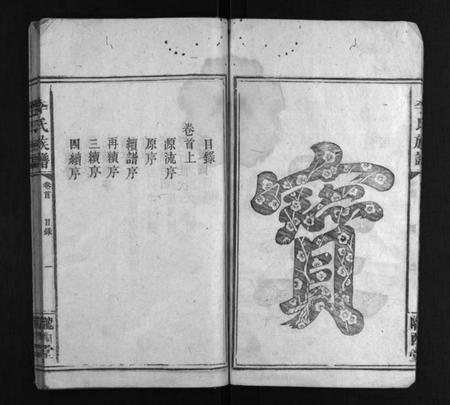 寶
李氏族譜
隴西堂
目錄
卷首上
源流序
原序
續譜序
再續序
三續序
四續序
李氏族譜
卷首
目錄
一
隴西堂